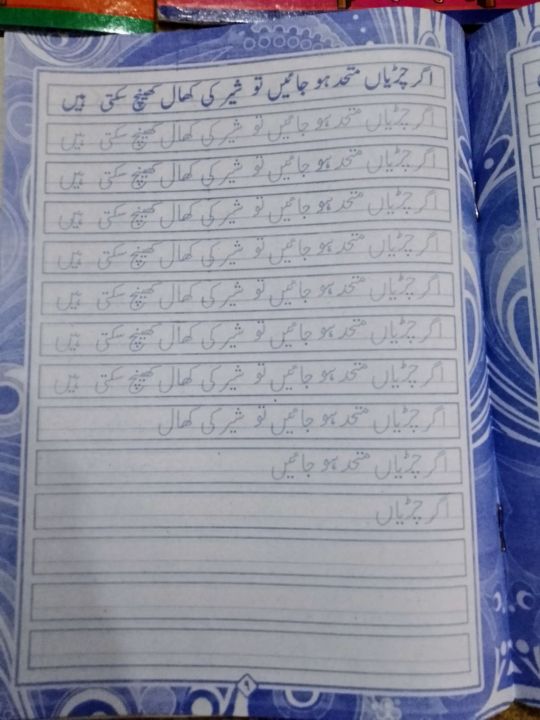 اگر چڑیاں متحد ہو جائیں تو شیر کی کھال کھینچ سکتی ہیں
اگر چڑیاں متحد ہو جائیں تو شیر کی کھال کھینچ سکتی ہیں
اگر چڑیاں متحد ہو جائیں تو شیر کی کھال کھینچ سکتی ہیں
اگر چڑیاں متحد ہو جائیں تو شیر کی کھال کھینچ سکتی ہیں
اگر چڑیاں متحد ہو جائیں تو شیر کی کھال کھینچ سکتی ہیں
اگر چڑیاں متحد ہو جائیں تو شیر کی کھال کھینچ سکتی ہیں
اگر چڑیاں متحد ہو جائیں تو شیر کی کھال کھینچ سکتی ہیں
اگر چڑیاں متحد ہو جائیں تو شیر کی کھال کھینچ سکتی ہیں
اگر چڑیاں متحد ہو جائیں تو شیر کی کھال
اگر چڑیاں متحد ہو جائیں
اگر چڑیاں
۹